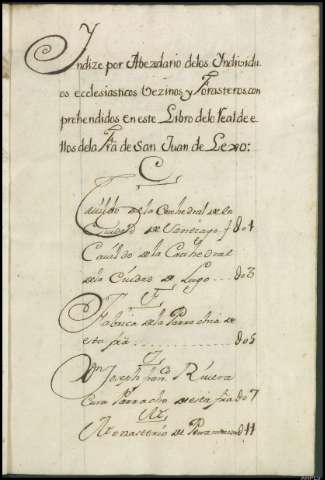 Yndize por Abezedario delos Individu
os ecclesiasticos Vezinos y Forasteros con
prehendidos en este Libro delo Real de e
llos dela Fra de San Juan de Lexo:
C
Cavildo de la Cathedral de la
Ciudad de Santiago f do 1
Cavildo de la Cathedral
de la Ciudad de Lugo ... do 3
F
Fabrica de la Parrochia de
esta fra ........... do 5
J
Dn Joseph franco Rivera
Cura Parrocho de esta fra do 7
M
Monasterio de do 11